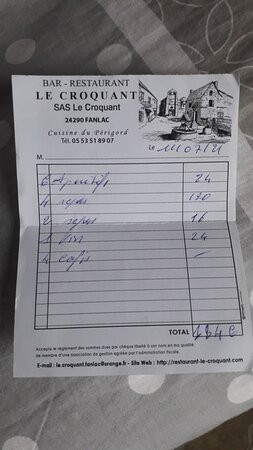 BAR - RESTAURANT
LE CROQUANT
SAS Le Croquant
24290 FANLAC
Cuisine du Périgord
Tél. 05 53 51 89 07
Le 11/07/21
M.
6 Apéritifs 24
4 repas
2 repas 16
1 Vin 24
4 cafés -
TOTAL
Accepte le règlement des sommes dues par chèque libellé à son nom en ma qualité
de membre d'une association de gestion agréée par l'administration fiscale.
E-mail : le.croquant.fanlac@orange.fr - Site Web : http://restaurant-le-croquant.com